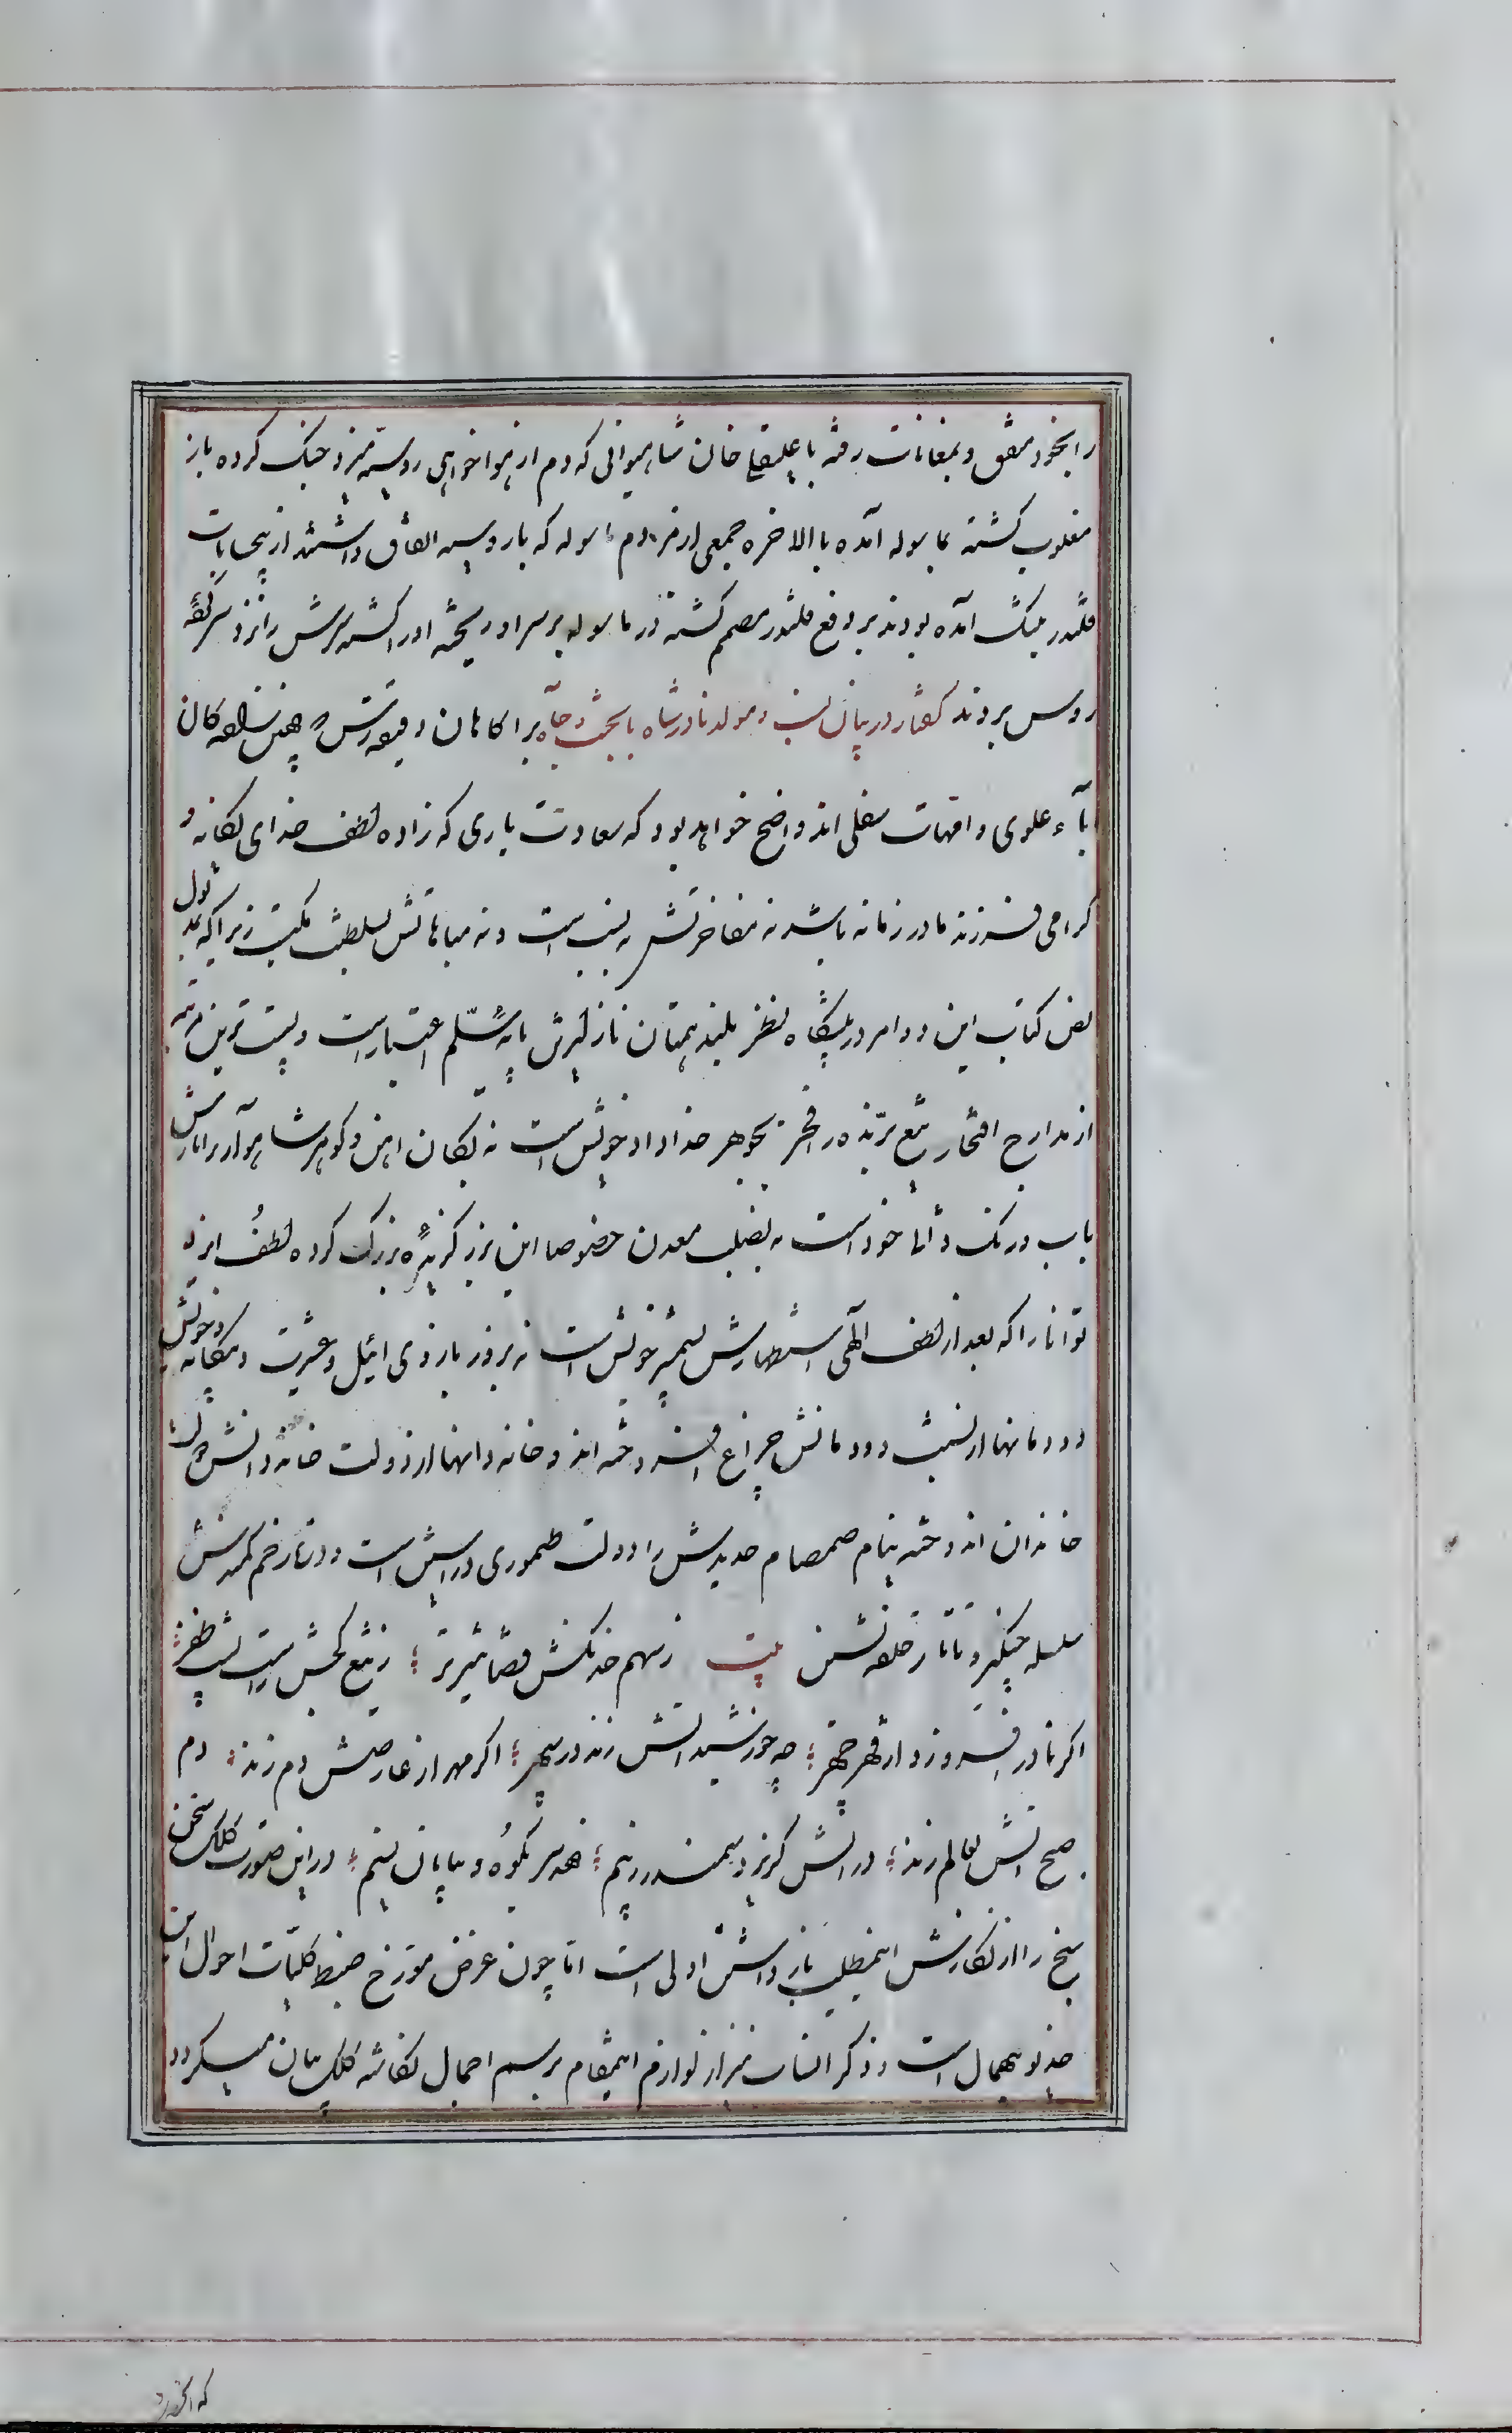 را بخود متفق و بمغانات رفته با علیقلی خان شاهسوانی که دم از هواخواهی روسیه میزد جنک کرده باز
مغلوب کشته بماسوله آمده بالاخره جمعی از مردم ماسوله که با روسیه اتفاق داشتند از بیحسابیات
قلندر بتنک آمده بودند بر دفع قلندر مصمم کشته در ماسوله بر سر او ریخته او را کشته سرش را نزد سرکرده
روس بردند کفتار در بیان نسب و مولد نادرشاه با بخت و جاه بر اکاهان دقیقه رس و
آباء علوی و امهات سفلی اند واضح خواهد بود که سعادت یاری که زاده لطف خدای یکانه و
کرامی فرزند مادر زمانه باشد نه مفاخرتش به نسب است و نه مباهاتش بسلطنت مکتسب زیرا که بمدلول
نص کتاب این دو امر در پیشگاه نظر بلند همتان نازلترین پایه سلم اعتبار است و پست ترین مرتبه
از مدارج افتخار تیغ برنده را فخر بجوهر خداداد خویش است نه بکان آهن و کوهر شاهوار را نازش
بآب و رنک ذاتی خود است نه بصلب معدن خصوصا این برزکزیده بزرک کرده لطف ایزد
توانا را که بعد از لطف الهی استظهارش بشمشیر خویش است نه بزور بازوی ایل و عشیرت و بیکانه و خویش
دودمانها از نسبت دودمانش چراغ افروخته اند و خاندانها از دولت خانه دانش
خاندان اندوخته بنام صمصام حدیدش را دولت طیموری در پیش است و در تار خم کمندش
سلسله چنکیز و تاتار حلقه نشین بیت ز سهم خدنکش قضا تیز تر ؛ ز تیغ کجش راست پشت ظفر ؛
اکر نادر افروزد از قهر چهر ؛ چه خورشید آتش زند در سپهر ؛ اکر مهر از عارضش دم زند ؛ دم
صبح آتش بعالم زند ؛ در آتش کریزد سمندر ز بیم ؛ نهد سر بکوه و بیابان نسیم ؛ در این صورت کلک سخن
سنج را از نکارش اینمطلب باز داشتن اولی است اما چون غرض مورخ ضبط کلیات احوال این
خدیو بیهمال است و ذکر انساب نیز از لوازم اینمقام برسم اجمال نکاشته کلک بیان میکردد
که آنحضرت